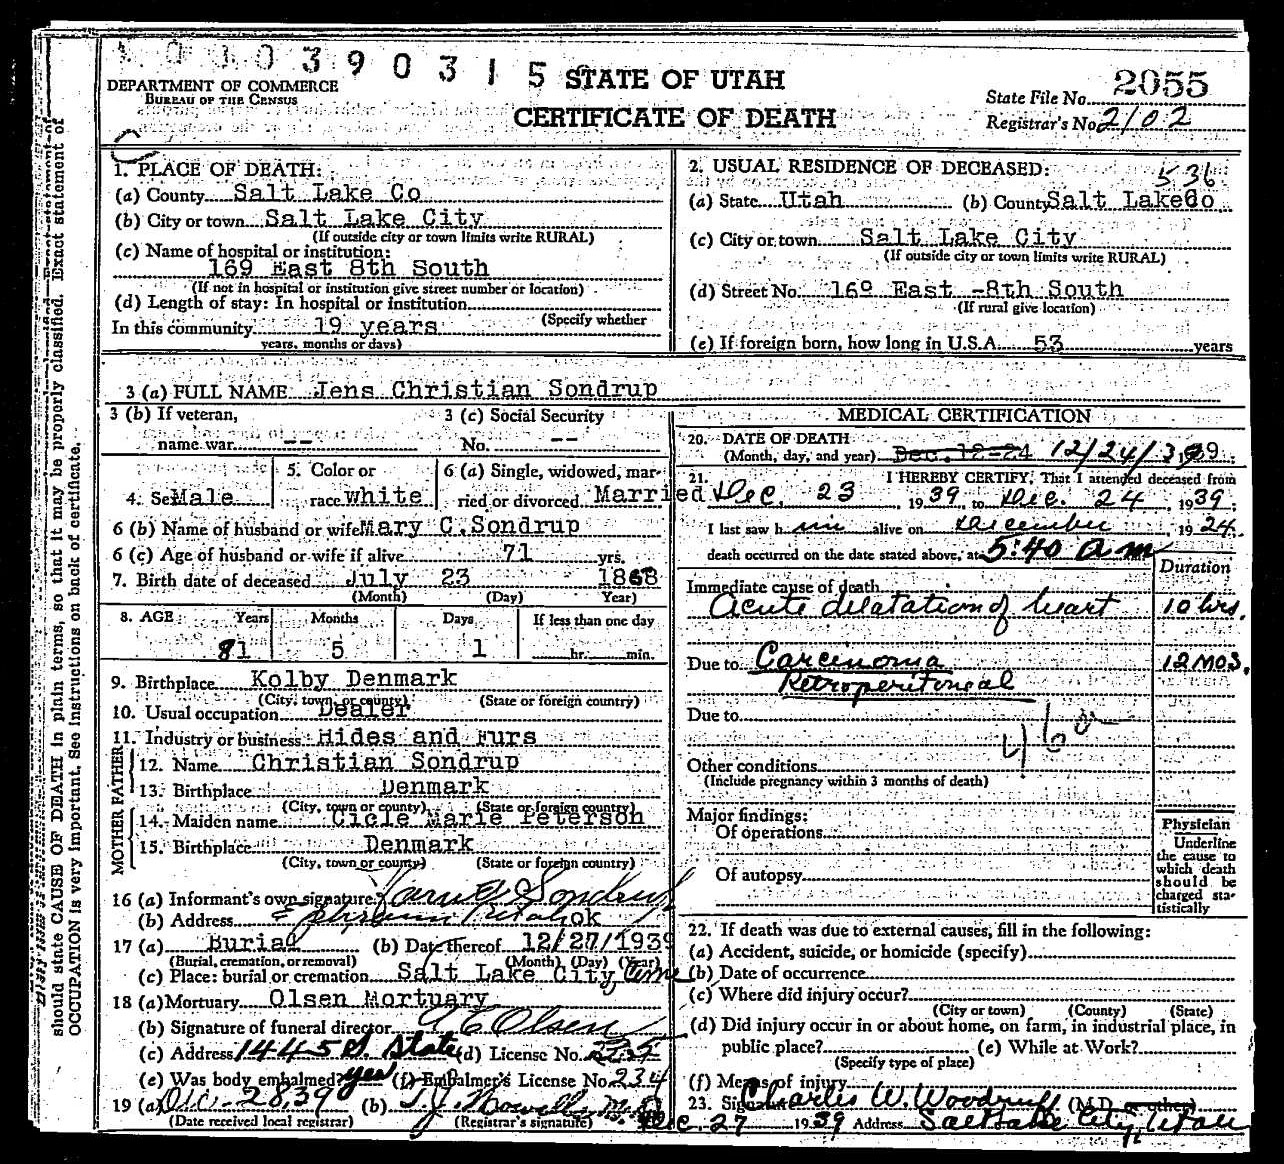 0 0 3 9 0 3 1 5
STATE OF UTAH
CERTIFICATE OF DEATH
DEPARTMENT OF COMMERCE
BUREAU OF THE CENSUS
State File No. 2055
Registrar's No. 2102
1. PLACE OF DEATH:
(a) County Salt Lake Co
(b) City or town Salt Lake City
(If outside city or town limits write RURAL)
(c) Name of hospital or institution:
169 East 8th South
(If not in hospital or institution give street number or location)
(d) Length of stay: In hospital or institution
(Specify whether
In this community 19 years
years, months or days)
2. USUAL RESIDENCE OF DECEASED:
536
(a) State Utah (b) County Salt Lake Co
(c) City or town Salt Lake City
(If outside city or town limits write RURAL)
(d) Street No. 169 East -8th South
(If rural give location)
(e) If foreign born, how long in U.S.A. 53 years
3 (a) FULL NAME Jens Christian Sondrup
3 (b) If veteran, 3 (c) Social Security
name war -- No. --
4. Sex Male 5. Color or race white 6 (a) Single, widowed, married or divorced Married
6 (b) Name of husband or wife Mary C. Sondrup
6 (c) Age of husband or wife if alive 71 yrs.
7. Birth date of deceased July 23 1868
(Month) (Day) Year)
8. AGE: Years Months Days If less than one day
81 5 1 hr. min.
9. Birthplace Kolby Denmark
(City, town, or county) (State or foreign country)
10. Usual occupation Dealer
11. Industry or business Hides and Furs
FATHER
12. Name Christian Sondrup
13. Birthplace Denmark
(City, town or county) (State or foreign country)
MOTHER
14. Maiden name Cicle Marie Peterson
15. Birthplace Denmark
(City, town or county) (State or foreign country)
16 (a) Informant's own signature Sondrup
(b) Address Ephraim Utah ok
17 (a) Burial (b) Date thereof 12/27/1939
(Burial, cremation, or removal) (Month) (Day) (Year)
(c) Place: burial or cremation Salt Lake City Cem
18 (a) Mortuary Olsen Mortuary
(b) Signature of funeral director Olsen
(c) Address 1445 So. State (d) License No.
(e) Was body embalmed? yes (f) Embalmer's License No. 234
19 (a) Dec. 28, 39 (b) M.D.
(Date received local registrar) (Registrar's signature)
MEDICAL CERTIFICATION
20. DATE OF DEATH
(Month, day, and year) Dec. 12-24 12/24/39
21. I HEREBY CERTIFY, That I attended deceased from
Dec. 23, 1939, to Dec. 24, 1939.
I last saw him alive on December 1924
death occurred on the date stated above, at 5:40 a m
Duration
Immediate cause of death
Acute dilatation of heart 10 hrs.
Due to Carcinoma 12 MOS.
Retroperitoneal
Due to
Other conditions
(Include pregnancy within 3 months of death)
Major findings:
Of operations
Of autopsy
Physician
Underline
the cause to
which death
should be
charged sta-
tistically
22. If death was due to external causes, fill in the following:
(a) Accident, suicide, or homicide (specify)
(b) Date of occurrence
(c) Where did injury occur?
(City or town) (County) (State)
(d) Did injury occur in or about home, on farm, in industrial place, in
public place? (e) While at Work?
(Specify type of place)
(f) Means of injury
23. Signature Charles W. Woodruff (M.D. or other)
Dec. 27 1939 Address Salt Lake City, Utah
should state CAUSE OF DEATH in plain terms, so that it may be properly classified. Exact statement of
OCCUPATION is very important. See instructions on back of certificate.